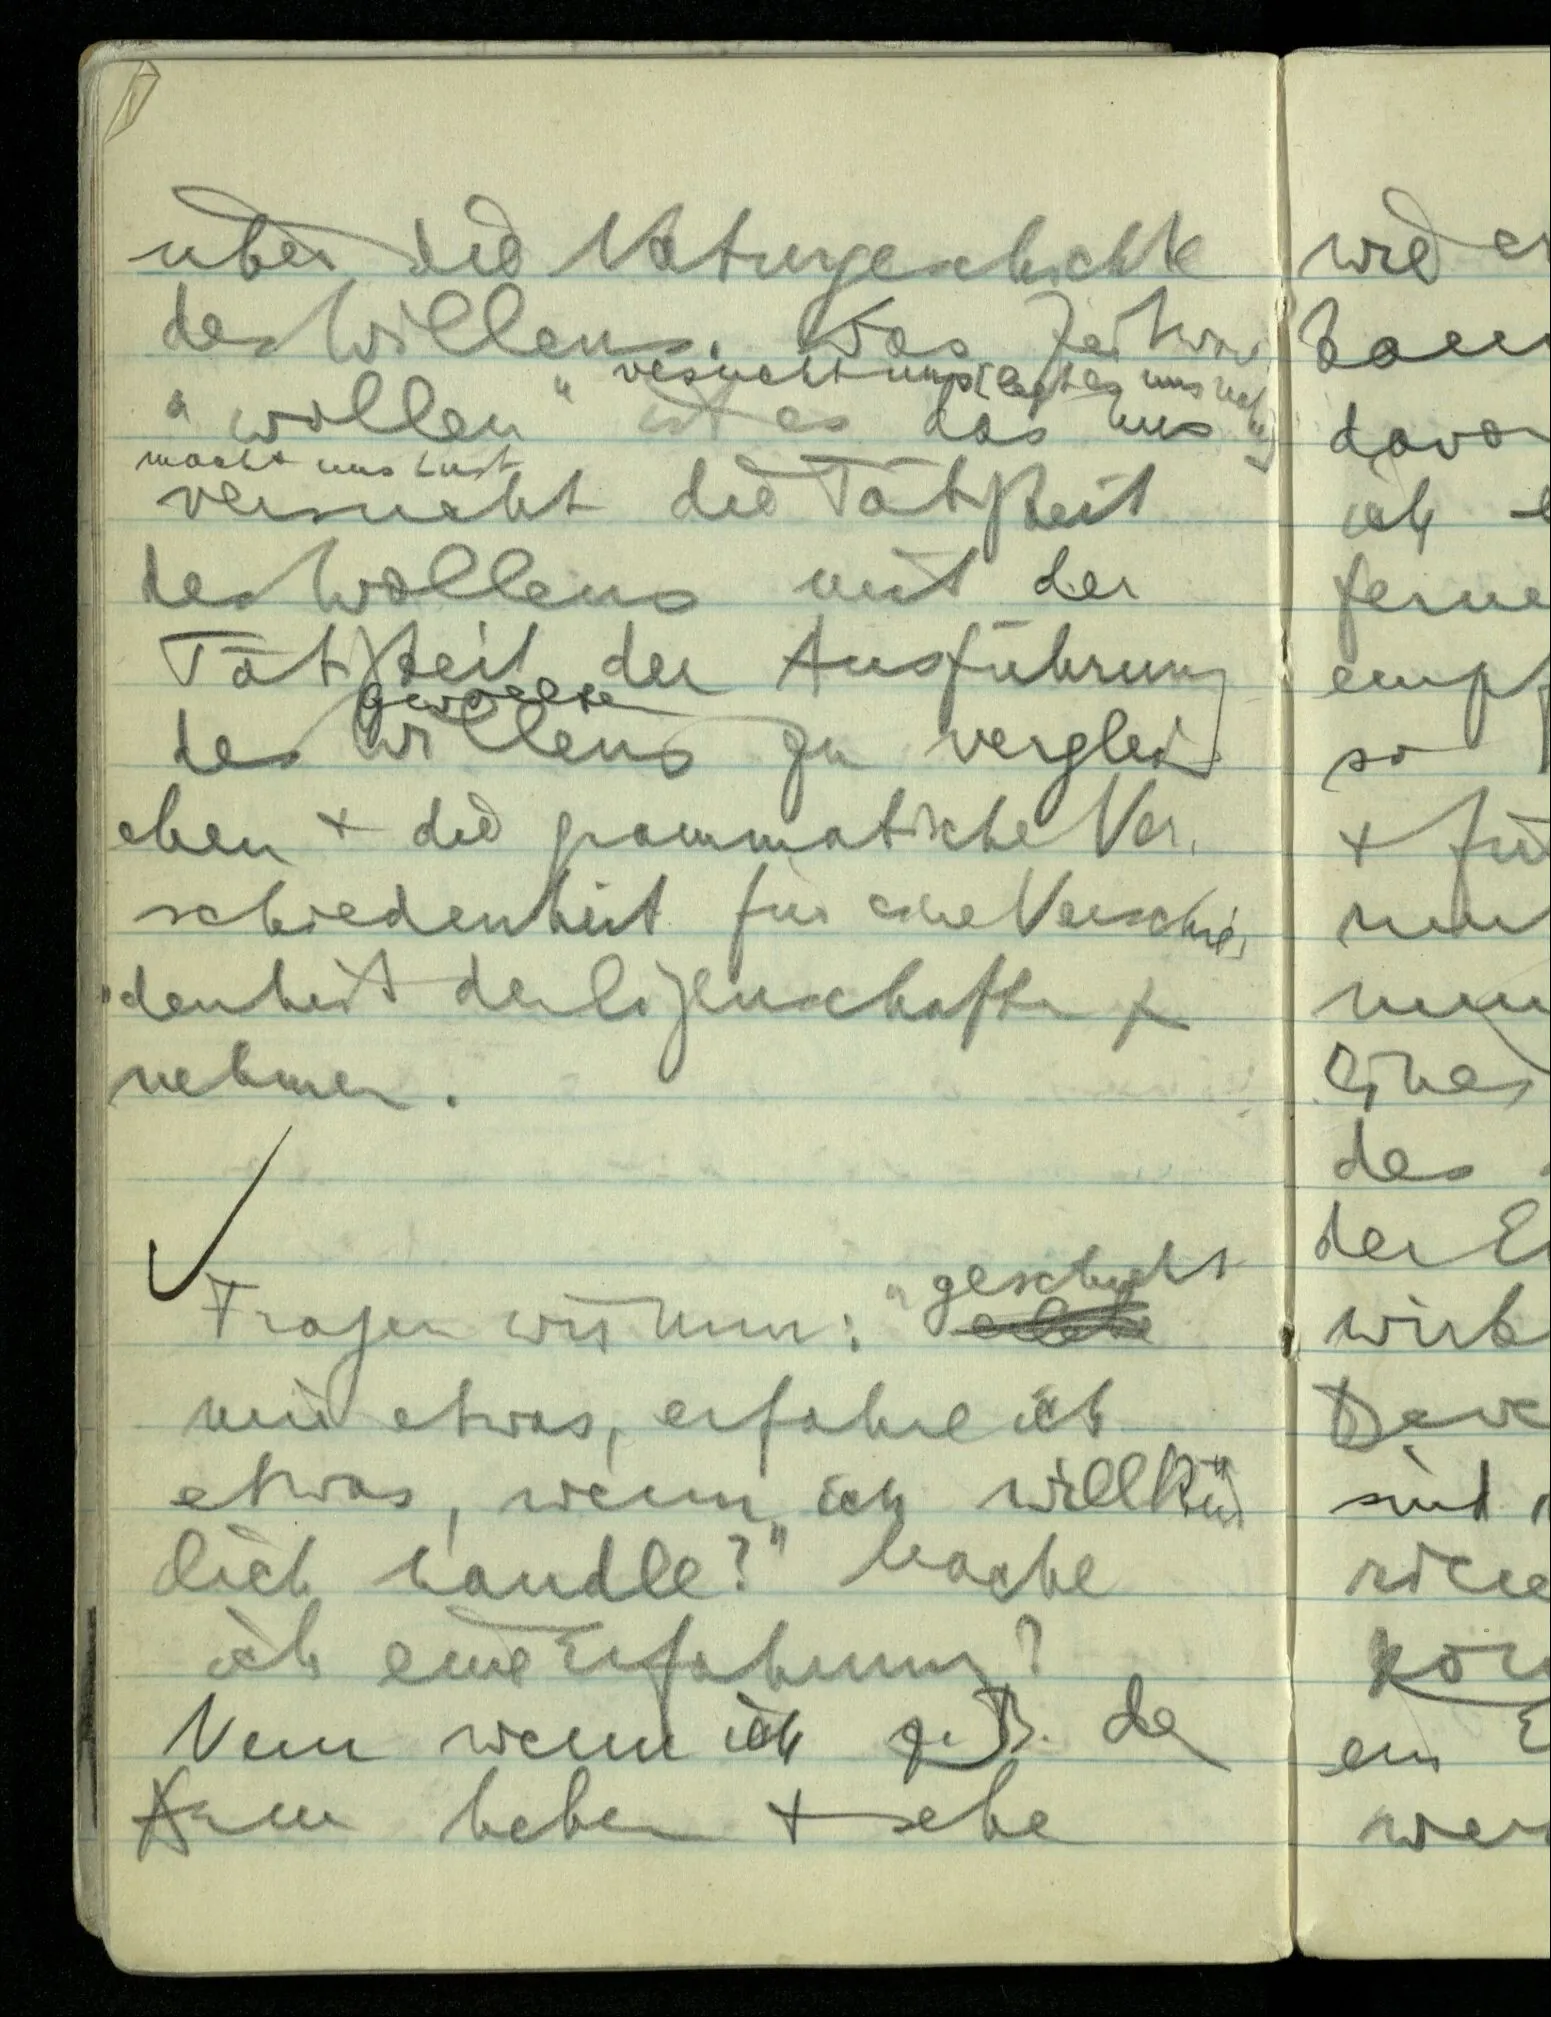 über die Naturgeschichte
des Willens. Das Zeitwort
versucht uns (legt es uns nah)
"wollen" ist es das uns
macht uns Lust
versucht die Tätigkeit
des Wollens mit der
Tätigkeit der Ausführung
gewollten
des Willens zu verglei
chen + die grammatische Ver-
schiedenheit für eine Verschie-
denheit der Eigenschaften zu
nehmen.
Fragen wir nun: "geschieht
mir etwas, erfahre ich
etwas, wenn ich willkür
lich handle?" Mache
ich eine Erfahrung?
Nun wenn ich z.B. den
Arm hebe + sehe
wie er
davon
ich
ferne
empf
so
+ für
nun
eines
des
der
wirk
sind
ein
wer